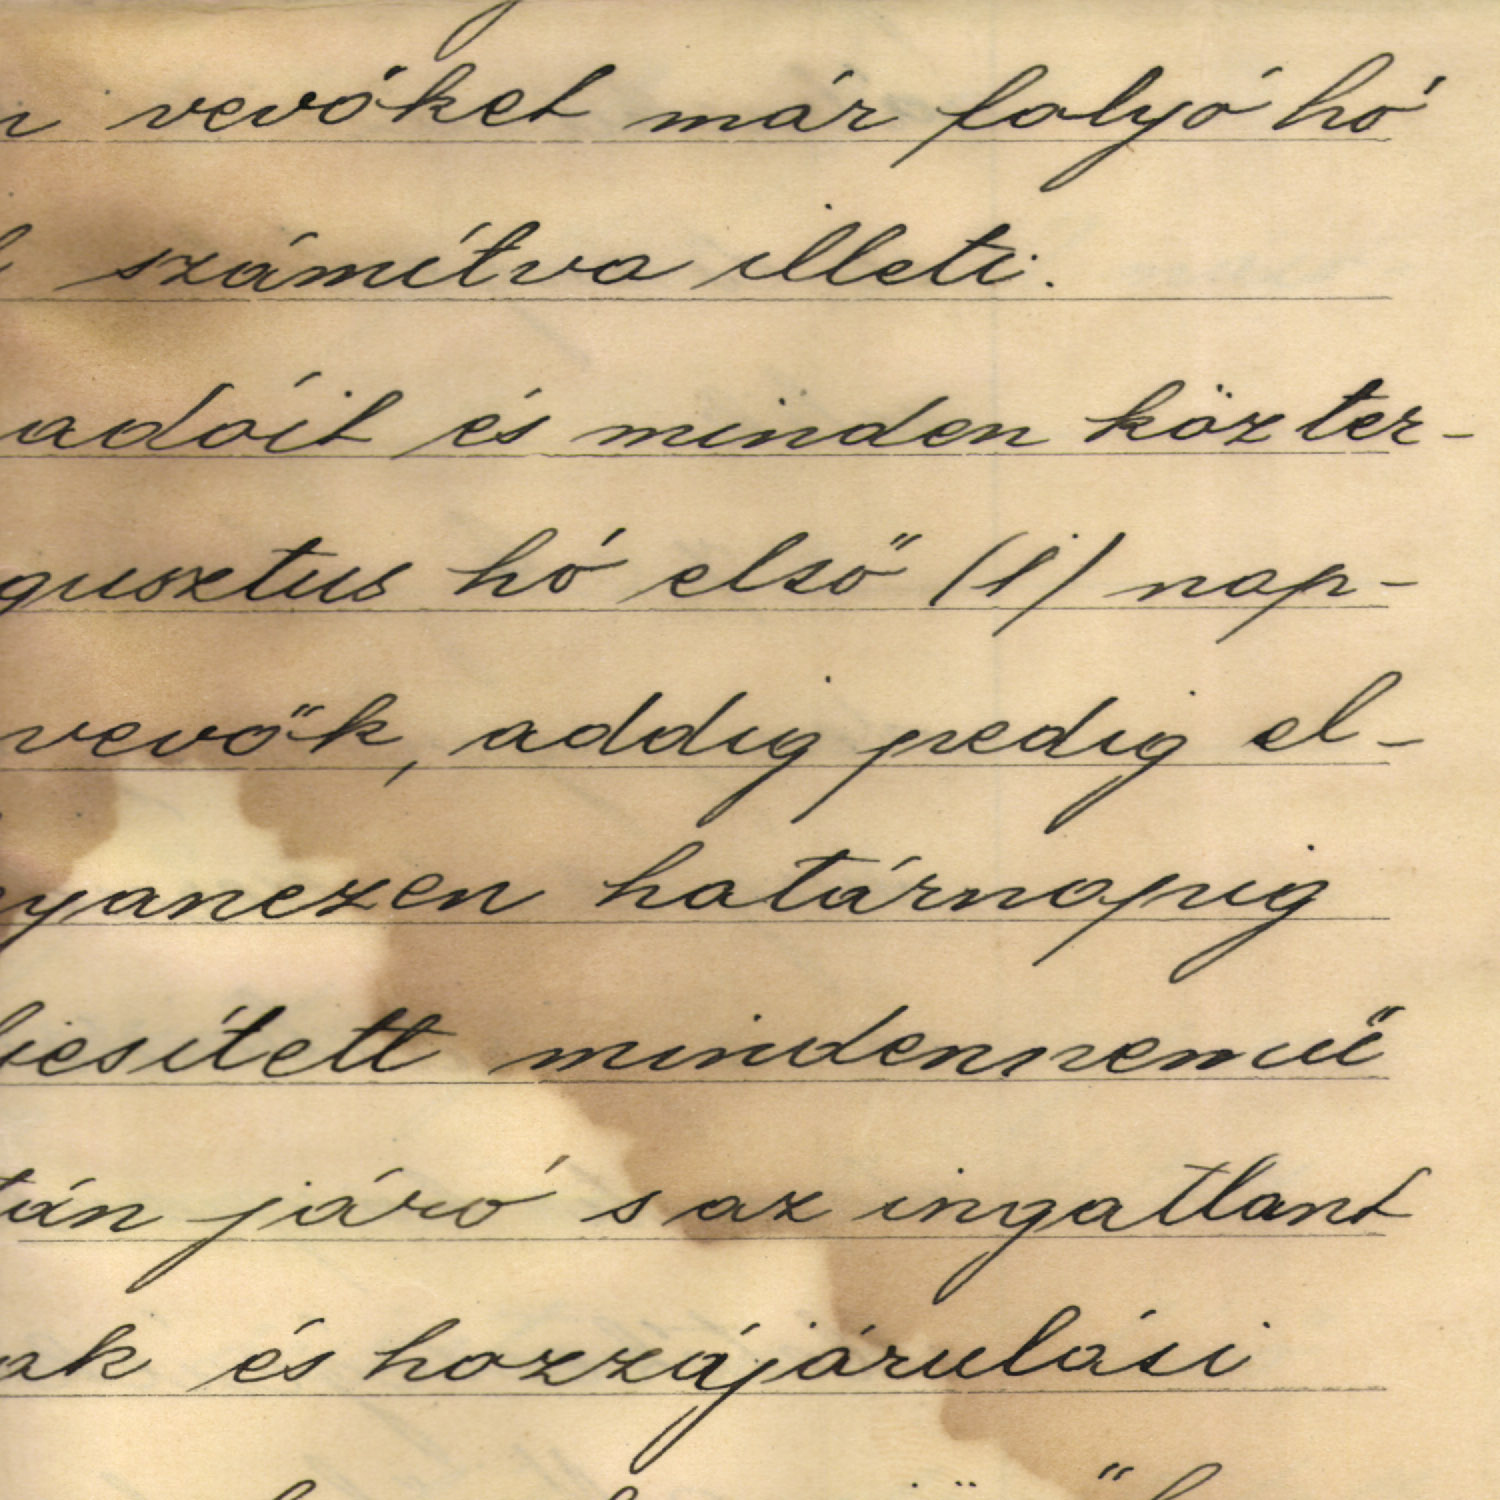 vevőket már folyó hó
számítva illeti.
adóit és minden közter-
gusztus hó első (1) nap-
vevők, addig pedig el-
yanezen határnapig
iesített mindennemű
tán járó s az ingatlant
ak és hozzájárulási